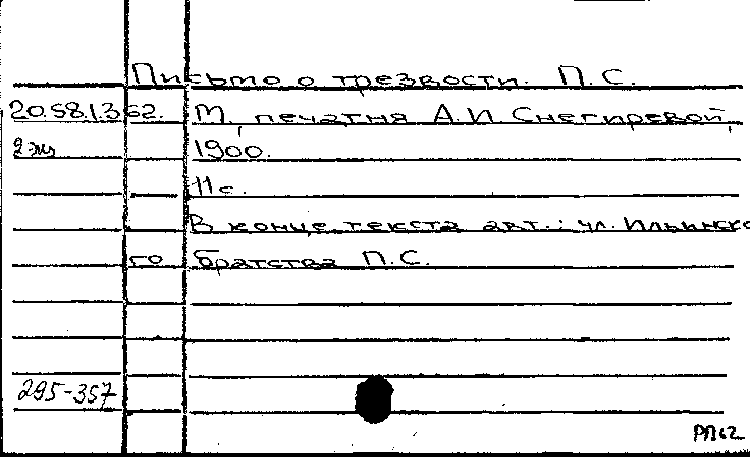 Письмо о трезвости. П.С.
20.58.1.362. М., печатня А.И Снегиревой,
2 экз 1900.
11 с.
В конце текста авт.: чл. Ильинско
го братства П.С.
295-357
РП62